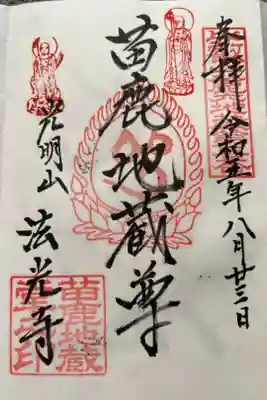 奉拝 令和五年八月廿三日
苗鹿地蔵尊
光明山 法光寺
苗鹿地蔵